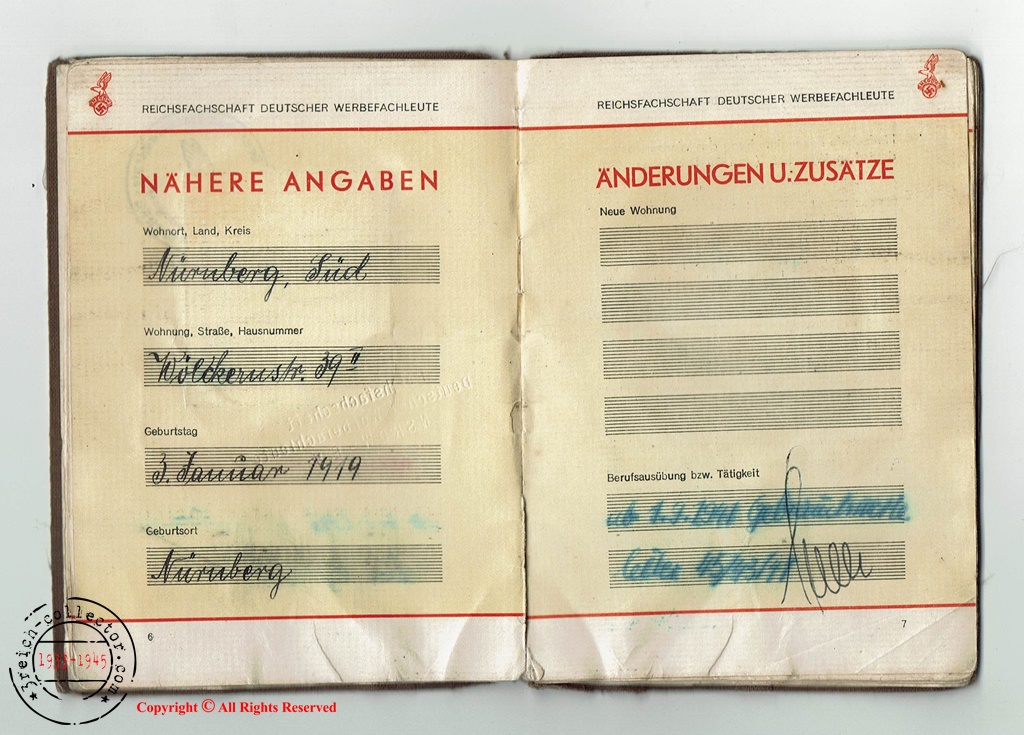 REICHSFACHSCHAFT DEUTSCHER WERBEFACHLEUTE
NÄHERE ANGABEN
Wohnort, Land, Kreis
Nürnberg, Süd
Wohnung, Straße, Hausnummer
Wölckernstr. 39 II
Geburtstag
3. Januar 1919
Geburtsort
Nürnberg
6
REICHSFACHSCHAFT DEUTSCHER WERBEFACHLEUTE
ÄNDERUNGEN U. ZUSÄTZE
Neue Wohnung
Berufsausübung bzw. Tätigkeit
ab 1.
7
3reich-collector.com
1933-1945
Copyright © All Rights Reserved